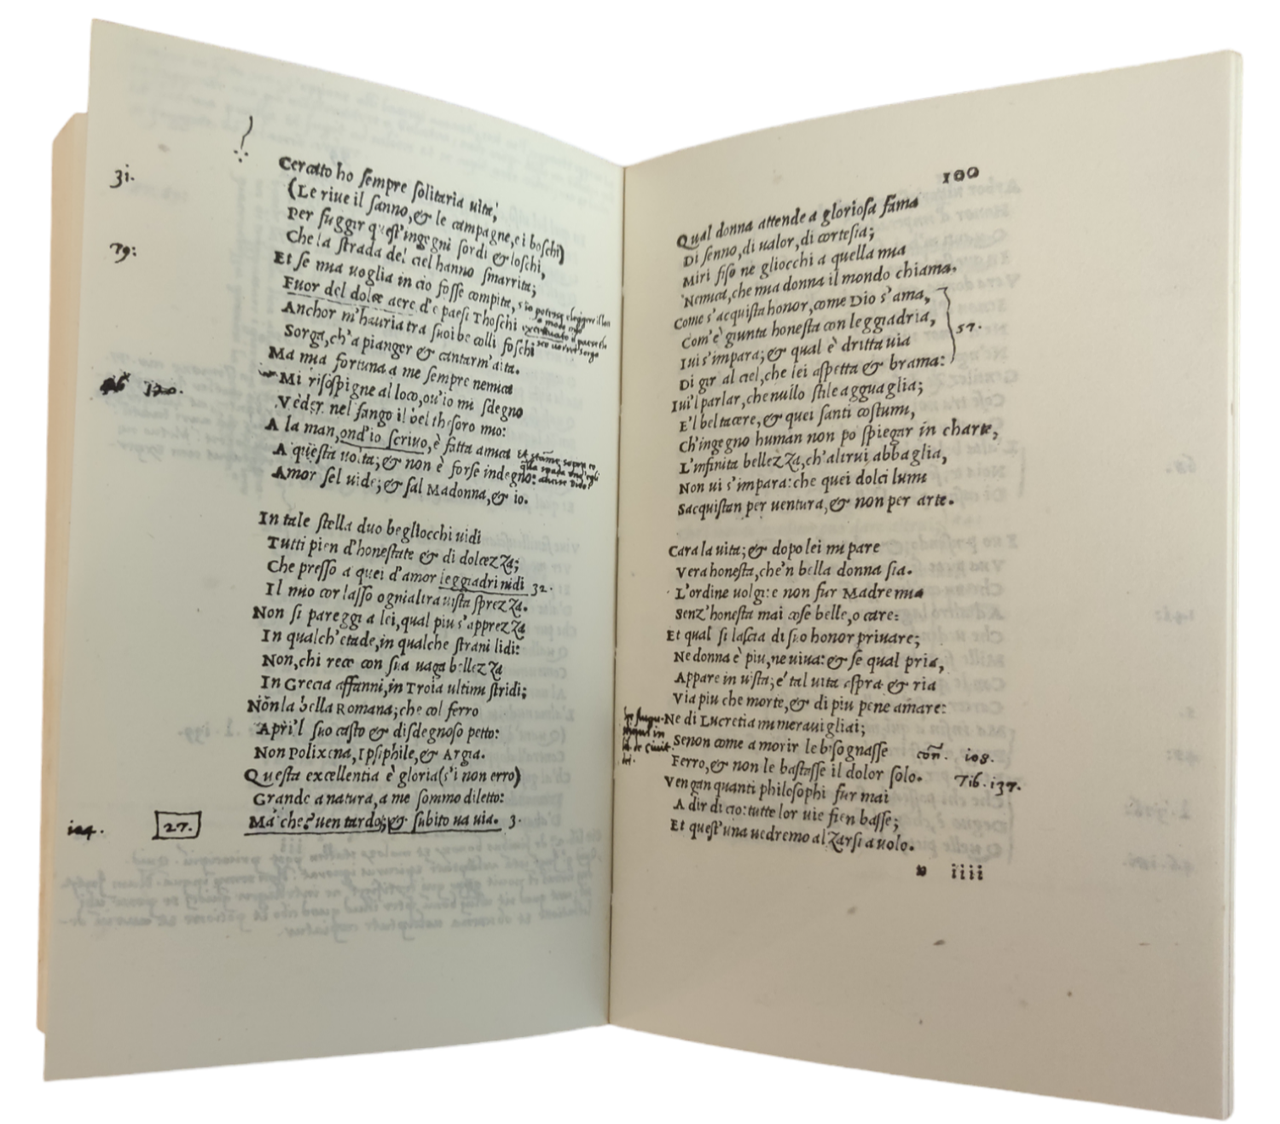 31.
Cercato ho sempre solitaria uita,
(Le riue il sanno, & le campagne, e i boschi)
Per fuggir quest'ingegni sordi & loschi,
79:
Che la strada del ciel hanno smarrita;
Et se mia uoglia in cio fosse compita,
Fuor del dolce aere d'e paesi Thoschi
Anchor m'hauria tra suoi be colli foschi
Sorga, ch'a pianger & cantar m'aita.
Ma mia fortuna a me sempre nemica
120.
Mi risospigne al loco, ou'io mi sdegno
Veder nel fango il bel thesoro mio:
A la man, ond'io scriuo, è fatta amica
A questa uolta; & non è forse indegno:
Amor sel uide; & sal Madonna, & io.
In tale stella duo begliocchi uidi
Tutti pien d'honestate & di dolcezza;
Che presso a quei d'amor leggiadri nidi 32.
Il mio cor lasso ognialtra uista sprezza.
Non si pareggi a lei, qual piu s'apprezza
In qualch'etade, in qualche strani lidi:
Non, chi reco con sua uaga bellezza
In Grecia affanni, in Troia ultimi stridi;
Non la bella Romana; che col ferro
Apri'l suo casto & disdegnoso petto:
Non Polixena, Ipsiphile, & Argia.
Questa excellentia è gloria (s'i non erro)
Grande a natura, a me sommo diletto:
124. 27. Ma che? uien tardo; & subito ua uia. 3.
100
Qual donna attende a gloriosa fama
Di senno, di ualor, di cortesia;
Miri fiso ne gliocchi a quella mia
Nemica, che mia donna il mondo chiama.
Come s'acquista honor, come Dio s'ama,
Com'è giunta honesta con leggiadria, 57.
Iui s'impara; & qual è dritta uia
Di gir al ciel, che lei aspetta & brama:
Iui'l parlar, che nullo stile agguaglia;
E'l bel tacere, & quei santi costumi,
Ch'ingegno human non po spiegar in charte,
L'infinita bellezza, ch'altrui abbaglia,
Non ui s'impara: che quei dolci lumi
Sacquistan per uentura, & non per arte.
Cara la uita; & dopo lei mi pare
Vera honesta, che'n bella donna sia.
L'ordine uolgi: e non fur Madre mia
Senz'honesta mai cose belle, o care:
Et qual si lascia di suo honor priuare;
Ne donna è piu, ne uiua: & se qual pria,
Appare in uista; e' tal uita aspra & ria
Via piu che morte, & di piu pene amare:
Ne di Lucretia mi merauigliai;
Senon come a morir le bisognasse con. 108.
Ferro, & non le bastasse il dolor solo. 76. 137.
Vengan quanti philosophi fur mai
A dir di cio: tutte lor uie fien basse;
Et quest'una uedremo alzarsi a uolo.
n iiii